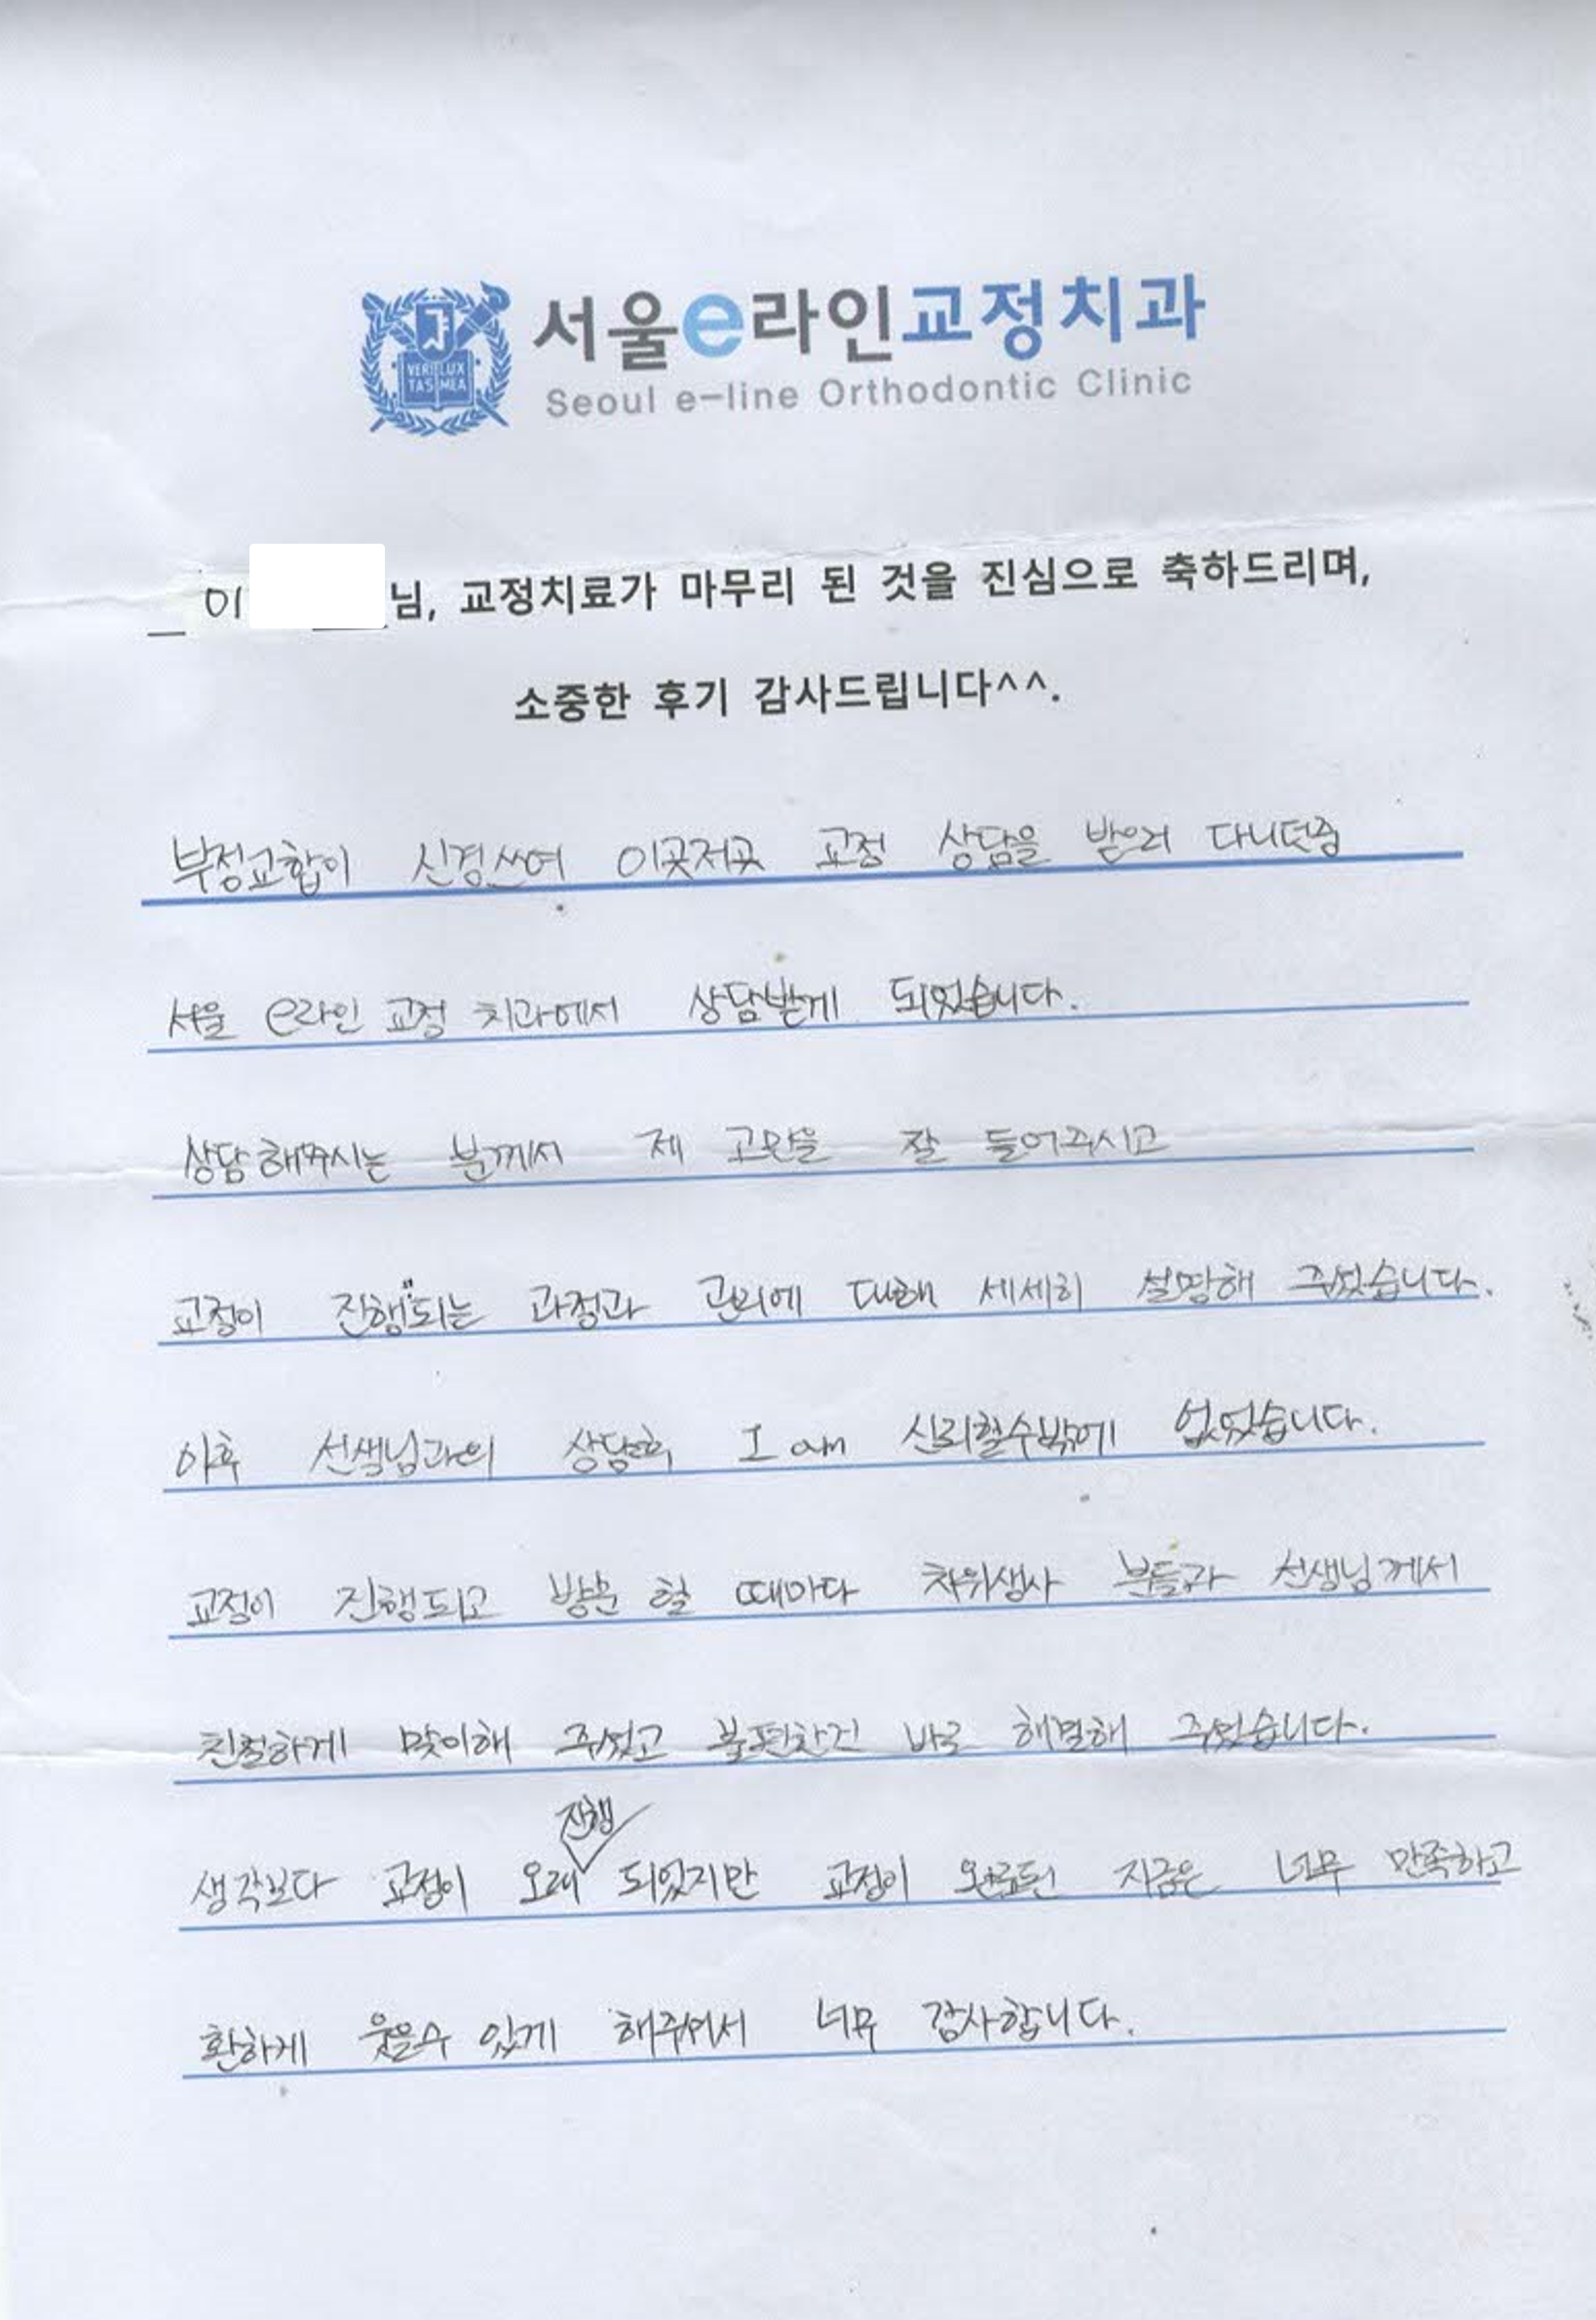 VERI LUX
TAS MEA
서울e라인교정치과
Seoul e-line Orthodontic Clinic
이 님, 교정치료가 마무리 된 것을 진심으로 축하드리며,
소중한 후기 감사드립니다^^.
부정교합이 신경쓰여 이곳저곳 교정 상담을 받으러 다니던중
서울 e라인 교정 치과에서 상담받게 되었습니다.
상담해주시는 분께서 제 고민을 잘 들어주시고
교정이 진행되는 과정과 관리에 대해 세세히 설명해 주셨습니다.
이후 선생님과의 상담후 I am 신뢰할수밖에 없었습니다.
교정이 진행되고 방문 할 때마다 치위생사 분들과 선생님께서
친절하게 맞이해 주셨고 불편한건 바로 해결해 주셨습니다.
진행
생각보다 교정이 오래 되었지만 교정이 완료된 지금은 너무 만족하고
환하게 웃을수 있게 해주셔서 너무 감사합니다.